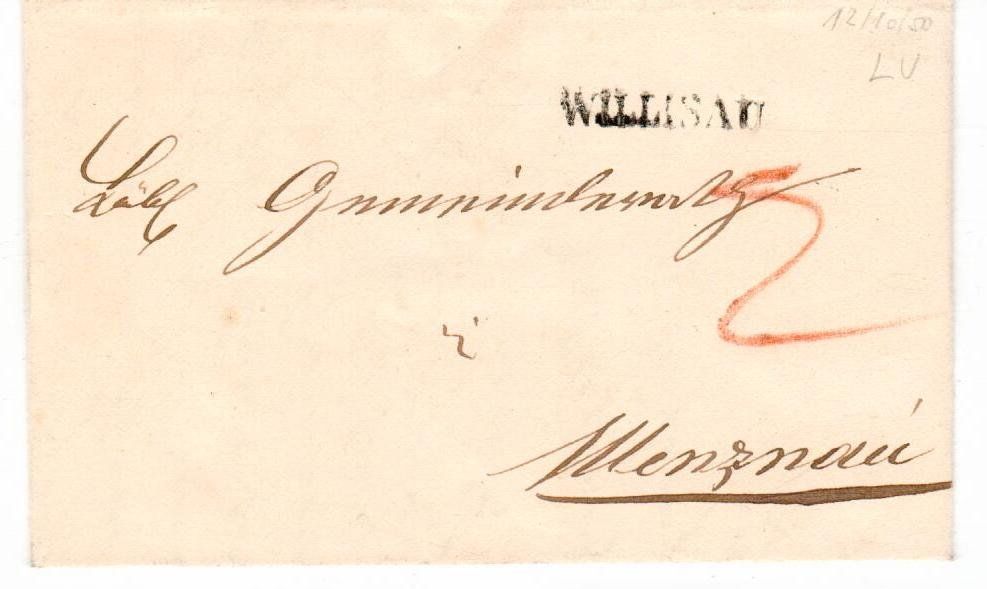 12/10/50
LU
WILLISAU
Löbl Gemeinderath
2
i
Menznau